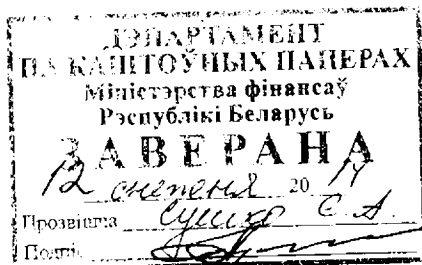 ДЭПАРТАМЕНТ
ПА КАШТОЎНЫХ ПАПЕРАХ
Міністэрства фінансаў
Рэспублікі Беларусь
ЗАВЕРАНА
12 снежня 20
Прозвішча Сушко С. А.
Подпіс